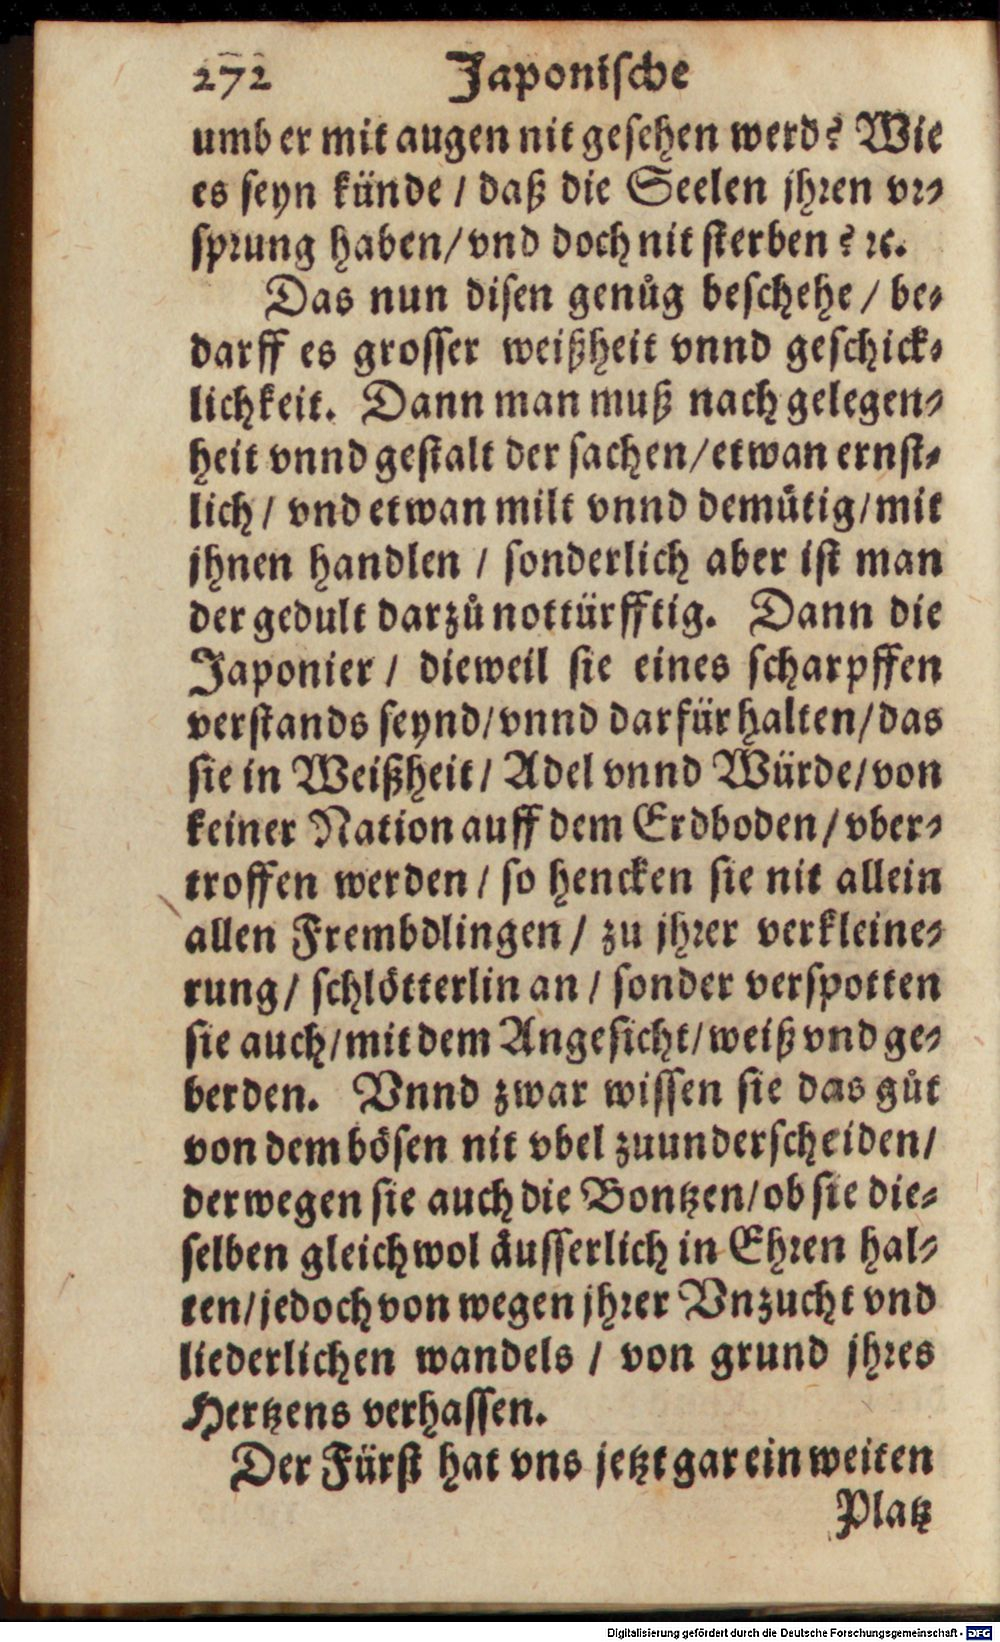 272 Japonische
umb er mit augen nit gesehen werd? Wie
es seyn künde / daß die Seelen jhren vr-
sprung haben / vnd doch nit sterben? ꝛc.
Das nun disen genůg beschehe / be-
darff es grosser weißheit vnnd geschick-
lichkeit. Dann man muß nach gelegen-
heit vnnd gestalt der sachen / etwan ernst-
lich / vnd etwan milt vnnd demütig / mit
jhnen handlen / sonderlich aber ist man
der gedult darzů nottürfftig. Dann die
Japonier / dieweil sie eines scharpffen
verstands seynd / vnnd darfür halten / das
sie in Weißheit / Adel vnnd Würde / von
keiner Nation auff dem Erdboden / vber-
troffen werden / so hencken sie nit allein
allen Frembdlingen / zu jhrer verkleine-
rung / schlötterlin an / sonder verspotten
sie auch / mit dem Angesicht / weiß vnd ge-
berden. Vnnd zwar wissen sie das gůt
von dem bösen nit vbel zuunderscheiden /
derwegen sie auch die Bontzen / ob sie die-
selben gleichwol äusserlich in Ehren hal-
ten / jedoch von wegen jhrer Vnzucht vnd
liederlichen wandels / von grund jhres
Hertzens verhassen.
Der Fürst hat vns jetzt gar ein weiten
Platz
Digitalisierung gefördert durch die Deutsche Forschungsgemeinschaft - DFG